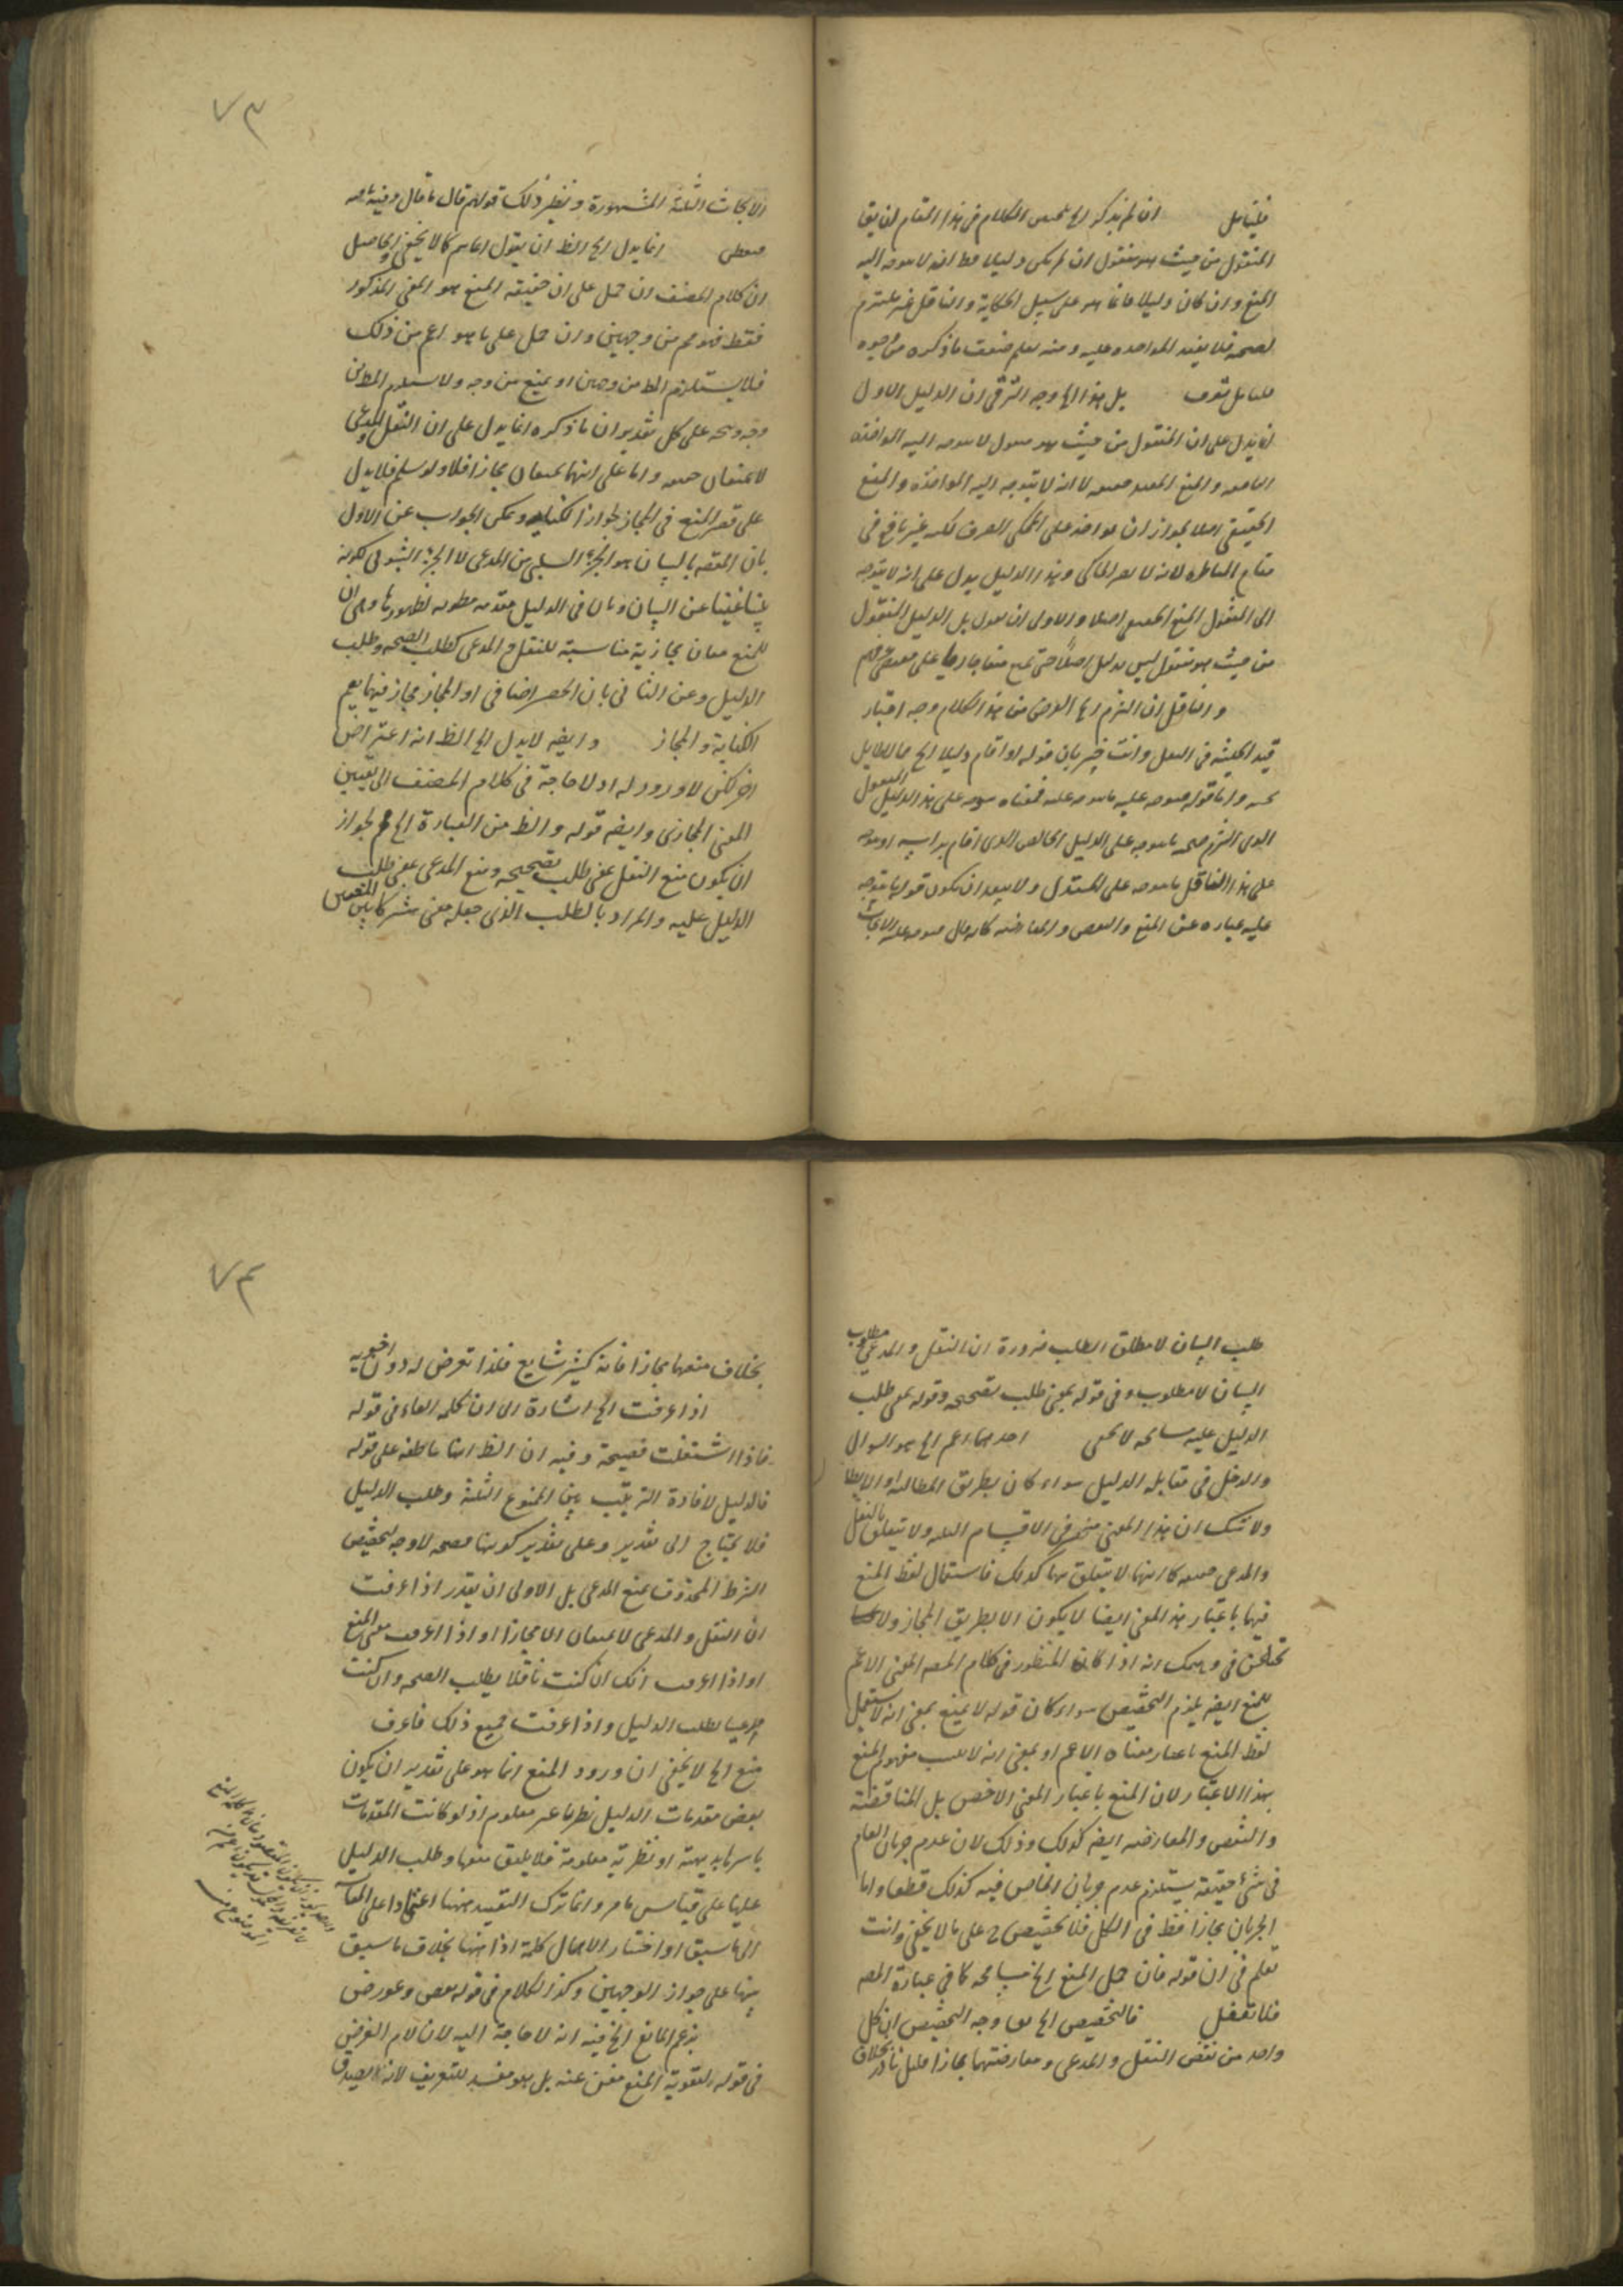 فليتأمل ان لم يذكر الخ تلخيص الكلام في هذا المقام ان يق
المنقول من حيث هو منقول ان لم يكن دليلا فظ انه لا يتوجه اليه
المنع وان كان دليلا فانما هو على سبيل الحكاية والناقل غير ملتزم
لصحته فلا يفيد المواخذة عليه ومنه يعلم ضعف ما ذكره من وجوه
فتأمل تعرف بل هذا الخ وجه الترقي ان الدليل الاول
انما يدل على ان المنقول من حيث هو منقول لا يتوجه اليه المواخذة
النافعة والمنع المفيد حقيقة لا انه لا يتوجه اليه المواخذة والمنع
الحقيقي اصلا لجواز ان يواخذ على المحكي الصرف لكنه غير نافع في
مقام المناظرة لانه لا يضر الحاكي وهذا الدليل يدل على انه لا يتوجه
الى المنقول المنع الحقيقي اصلا والاولى ان يقول بل الدليل المنقول
من حيث هو منقول ليس بدليل اصلا حتى يمنع
والناقل ان التزم الخ الغرض من هذا الكلام وجه اختيار
قيد الحيثية في النقل وانت خبير بان قوله او اقام دليلا الخ مما لا طائل
تحته واما قوله فيتوجه عليه ما يتوجه عليه فمعناه يتوجه على هذا الدليل المنقول
الذي التزم صحته ما يتوجه على الدليل الخالص الذي اقام
على هذا الناقل ما يتوجه على المستدل ولا يبعد ان يكون قوله ما يتوجه
عليه عبارة عن المنع والنقض والمعارضة كانه قال فيتوجه عليه الابحاث
٧٣
الابحاث الثلثة المشهورة ونظير ذلك قولهم قال ما قال وفيه ما فيه
انما يدل الخ الظ ان يقول كما لا يخفى والحاصل
ان كلام المصنف ان حمل على ان حقيقة المنع هو المعنى المذكور
فقط فهو مم من وجهين وان حمل على ما هو اعم من ذلك
فلا يستلزم المط من وجهين او يمنع من وجه ولا يستلزم المط من
وجه على كل تقدير ان ما ذكره انما يدل على ان النقل والمدعى
لا يمنعان حقيقة واما على انهما يمنعان مجازا فلا ولو سلم فلا يدل
على قصر المنع في المجاز لجواز الكناية ويمكن الجواب عن الاول
بان المقصد بالبيان هو الجزء السلبي من المدعى لا الجزء الثبوتي لكونه
بينا غنيا عن البيان وبان في الدليل مقدمة مطوية لظهورها وهي ان
للمنع معان مجازية مناسبة للنقل والمدعى كطلب الصحة وطلب
الدليل وعن الثاني بان الحصر اضافي او المجاز مجاز فيهما يعم
الكناية والمجاز وايضه لا يدل الخ الظ انه اعتراض
اخر لكن لا ورود له اذ لا حاجة في كلام المصنف الى تعيين
المعنى المجازي وايضه قوله والظ من العبارة الخ مم لجواز
ان يكون منع النقل بمعنى طلب تصحيحه ومنع المدعى بمعنى طلب
الدليل عليه والمراد بالطلب الذي جعله معنى مشتركا بين المنعين
طلب البيان لا مطلق الطلب ضرورة ان النقل والمدعى مطلوب
البيان لا مطلوب وفي قوله بمعنى طلب تصحيحه وقوله بمعنى طلب
الدليل عليه مسامحة لا يخفى احدهما اعم الخ هو السوال
والدخل في مقابلة الدليل سواء كان بطريق المطالبة او الابطال
ولا شك ان هذا المعنى منحصر في الاقسام الثلثة ولا يتعلق بالنقل
والمدعى حقيقة كما انهما لا يتعلق بهما كذلك فاستعمال لفظ المنع
فيهما باعتبار هذا المعنى ايضا لا يكون الا بطريق المجاز ولا
في وهمك انه اذا كان المنظور في كلام المصه المعنى الاعم
للمنع ايضه يلزم التخصيص سواء كان قوله لا يمنع بمعنى انه لا يستعمل
لفظ المنع باعتبار معناه الاعم او بمعنى انه لا يثبت مفهوم المنع
بهذا الاعتبار لان المنع باعتبار المعنى الاخص بل المناقضة
والنقض والمعارضة ايضه كذلك وذلك لان عدم جريان العام
في شئ حقيقة يستلزم عدم جريان الخاص فيه كذلك قطعا واما
الجريان مجازا فقط في الكل فلا تخصيص ح على ما لا يخفى وانت
تعلم ان في قوله فان حمل المنع الخ مسامحة كما في عبارة المصه
فلا تغفل فالتخصيص الخ وجه التخصيص ان كل
واحد من نقض النقل والمدعى ومعارضتهما مجازا قليل نادر بخلاف
٧٤
بخلاف منعهما مجازا فانه كثير شايع فلذا تعرض له دون اخويه
اذا عرفت الخ اشارة الى ان كلمة الفاء في قوله
فاذا اشتغلت فصيحة وفيه ان الظ انها عاطفة على قوله
فالدليل لافادة الترتيب بين المنوع الثلثة وطلب الدليل
فلا يحتاج الى تقدير وعلى تقدير كونها فصيحة لا وجه لتخصيص
الشرط المحذوف بمنع المدعى بل الاولى ان يقدر اذا عرفت
ان النقل والمدعى لا يمنعان الا مجازا او اذا عرفت معنى المنع
او اذا عرفت انك ان كنت ناقلا يطلب الصحة وان كنت
مدعيا يطلب الدليل واذا عرفت جميع ذلك فاعرف
منع الخ لا يخفى ان ورود المنع انما هو على تقدير ان يكون
بعض مقدمات الدليل نظريا غير معلوم اذ لو كانت المقدمات
باسرها بديهية او نظرية معلومة فلا يليق منعها وطلب الدليل
عليها على قياس ما مر وانما ترك التقييد ههنا اعتمادا على المقايسة
الى ما سبق او اختار الاهمال كلمة اذا ههنا بخلاف ما سبق
تنبيها على جواز الوجهين وكذا الكلام في قوله نقض وعورض
بزعم المانع الخ فيه انه لا حاجة اليه لان لام الغرض
في قوله لتقوية المنع مغن عنه بل هو مفسد للتعريف لانه لا يصدق